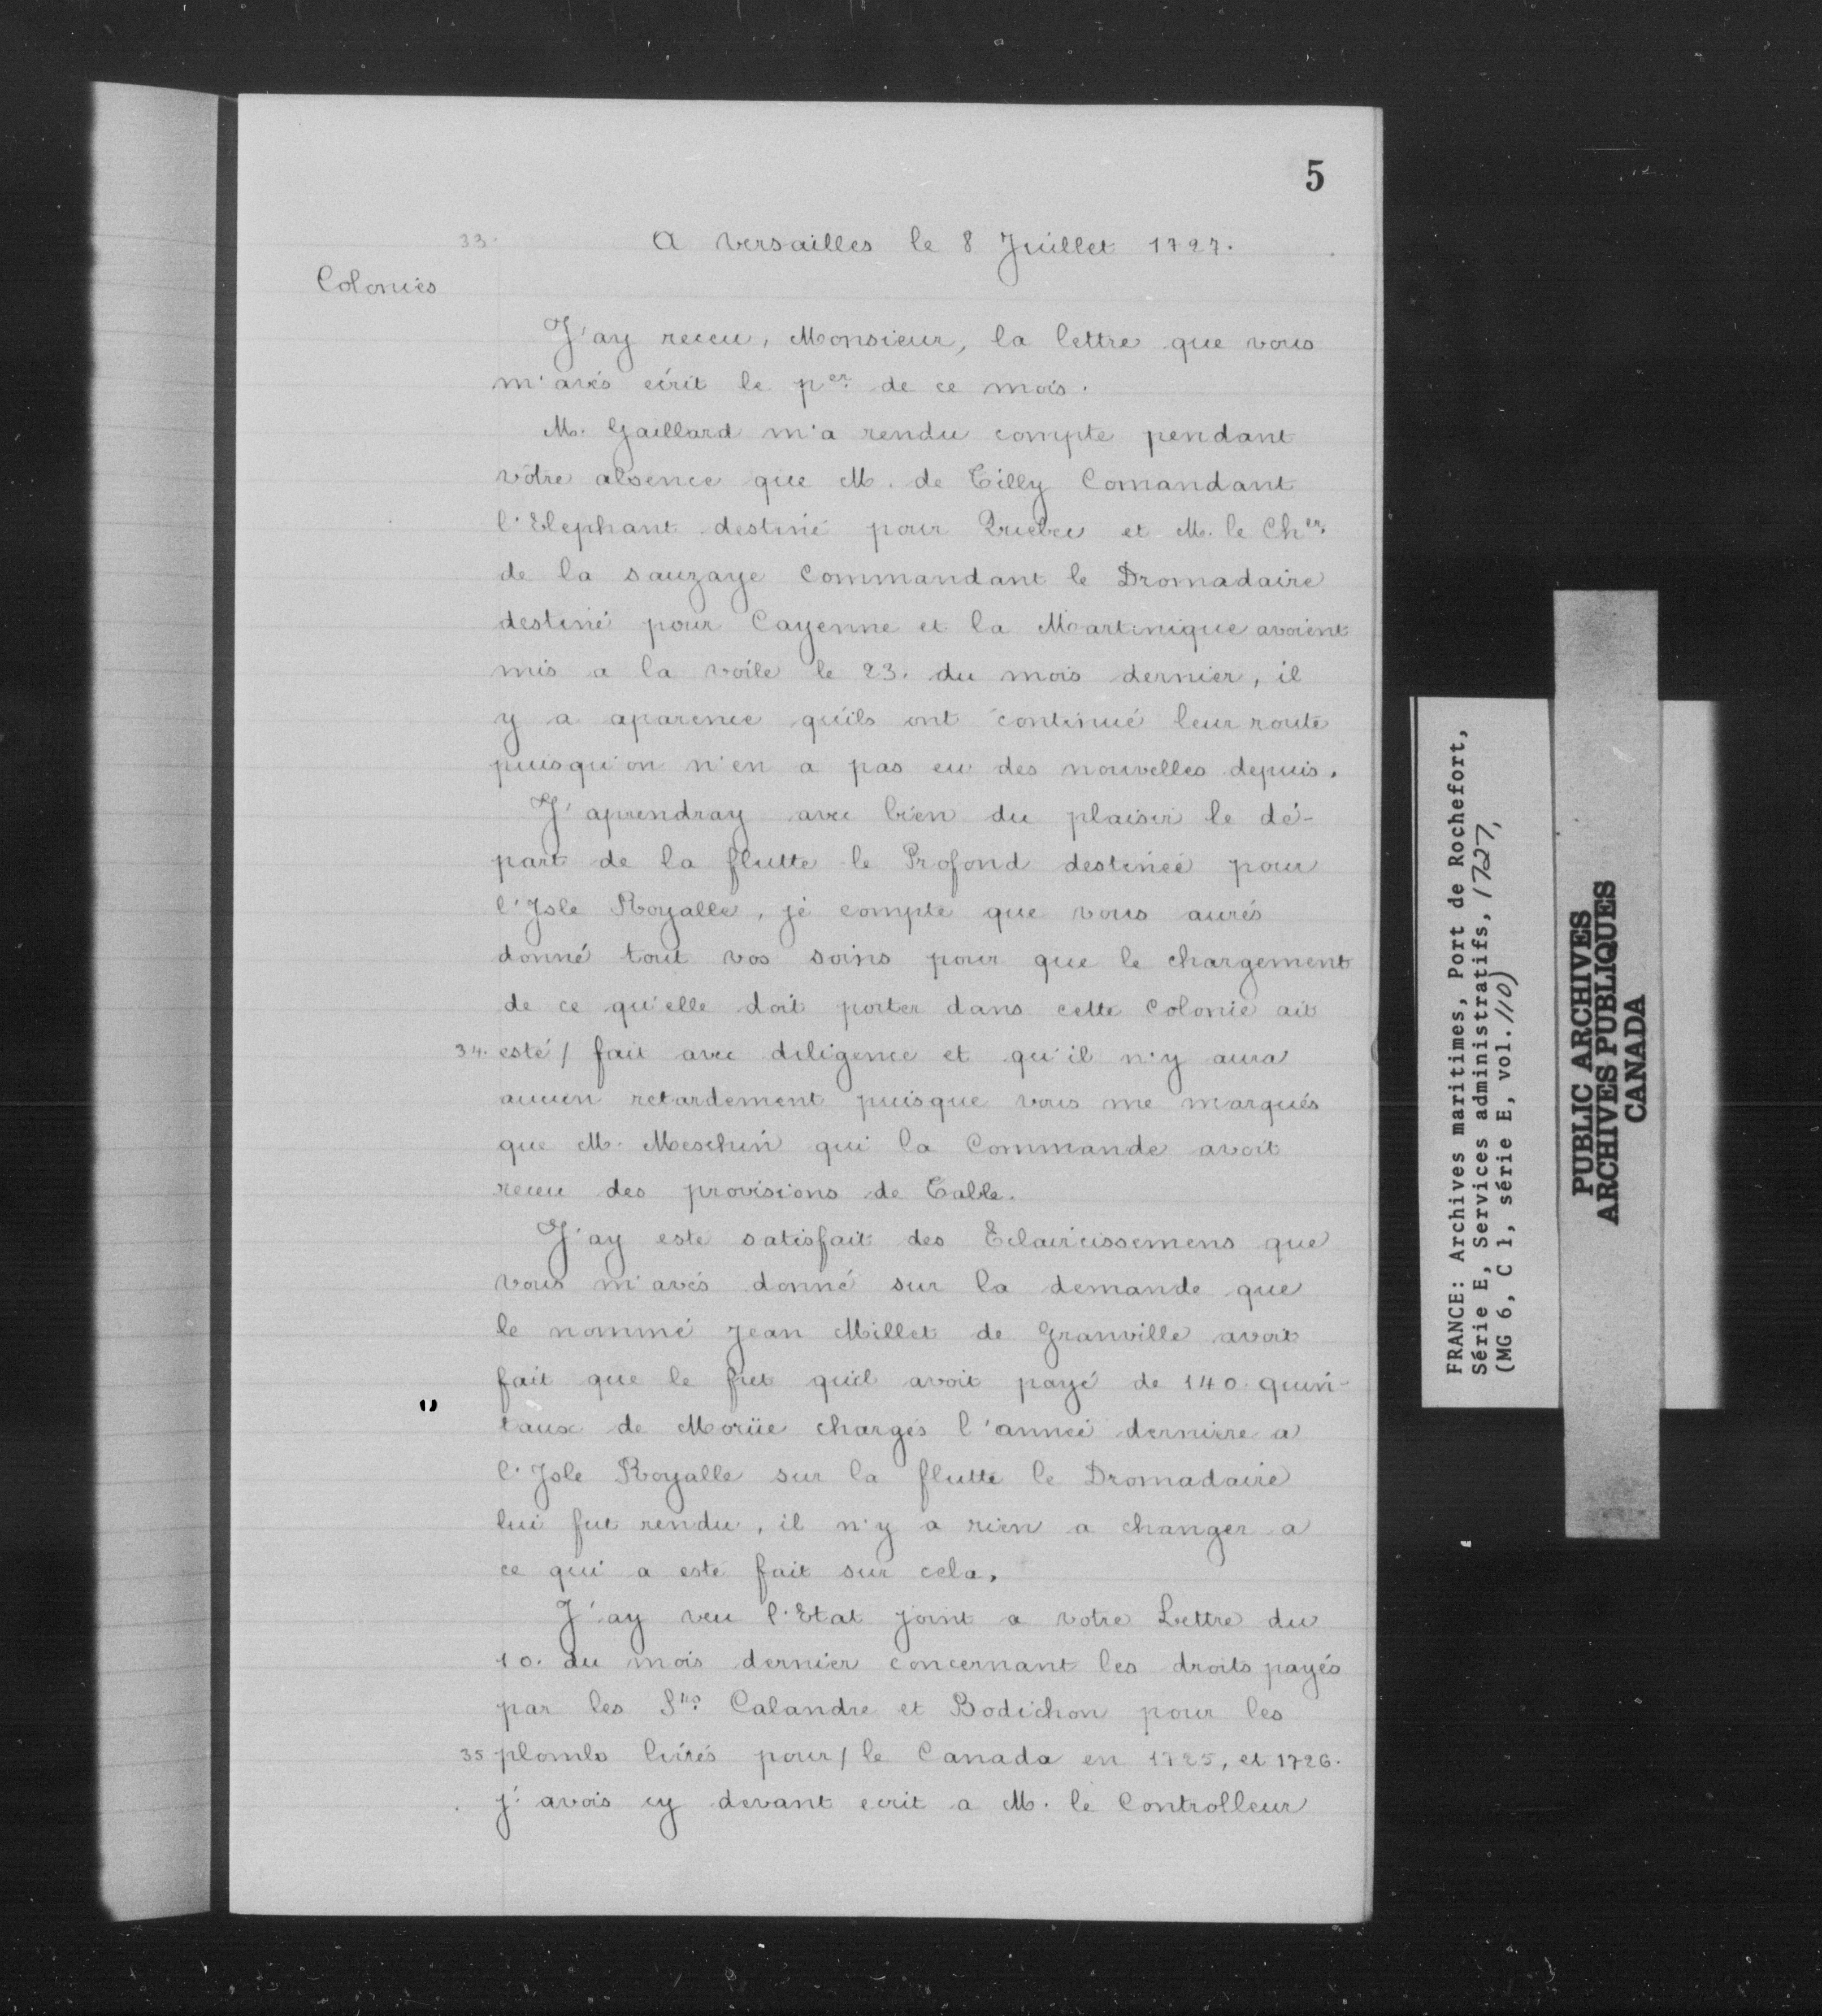 5
33. A versailles le 8 Juillet 1727.
Colonies
J'ay receu, Monsieur, la lettre que vous
m'avés écrit le p.er de ce mois.
M. Gaillard m'a rendu compte pendant
vôtre absence que M. de Tilly Comandant
l'Elephant destiné pour Quebec et M. le Ch.er
de la sauzaye Commandant le Dromadaire
destiné pour Cayenne et la Martinique avoient
mis a la voile le 23. du mois dernier, il
y a aparence qu'ils ont continué leur route
puisqu'on n'en a pas eu des nouvelles depuis.
J'aprendray avec bien du plaisir le dé-
part de la flutte le Profond destinée pour
l'Isle Royalle, je compte que vous aurés
donné tout vos soins pour que le chargement
de ce qu'elle doit porter dans cette Colonie ait
34. esté / fait avec diligence et qu'il n'y aura
aucun retardement puisque vous me marqués
que M. Meschin qui la Commande avoit
receu des provisions de Table.
J'ay esté satisfait des Eclaircissemens que
vous m'avés donné sur la demande que
le nommé Jean Millet de Granville avoit
fait que le fret qu'il avoit payé de 140. quin-
" taux de Morüe chargés l'année derniere a
l'Isle Royalle sur la flutte le Dromadaire
lui fut rendu, il n'y a rien a changer a
ce qui a esté fait sur cela.
J'ay veu l'Etat joint a votre Lettre du
10. du mois dernier concernant les droits payés
par les S.rs Calandre et Bodichon pour les
35 plombs livrés pour / le Canada en 1725, et 1726.
j'avois cy devant ecrit a M. le Controlleur
FRANCE: Archives maritimes, Port de Rochefort,
Série E, Services administratifs, 1727,
(MG 6, C 1, série E, vol. 110)
PUBLIC ARCHIVES
ARCHIVES PUBLIQUES
CANADA